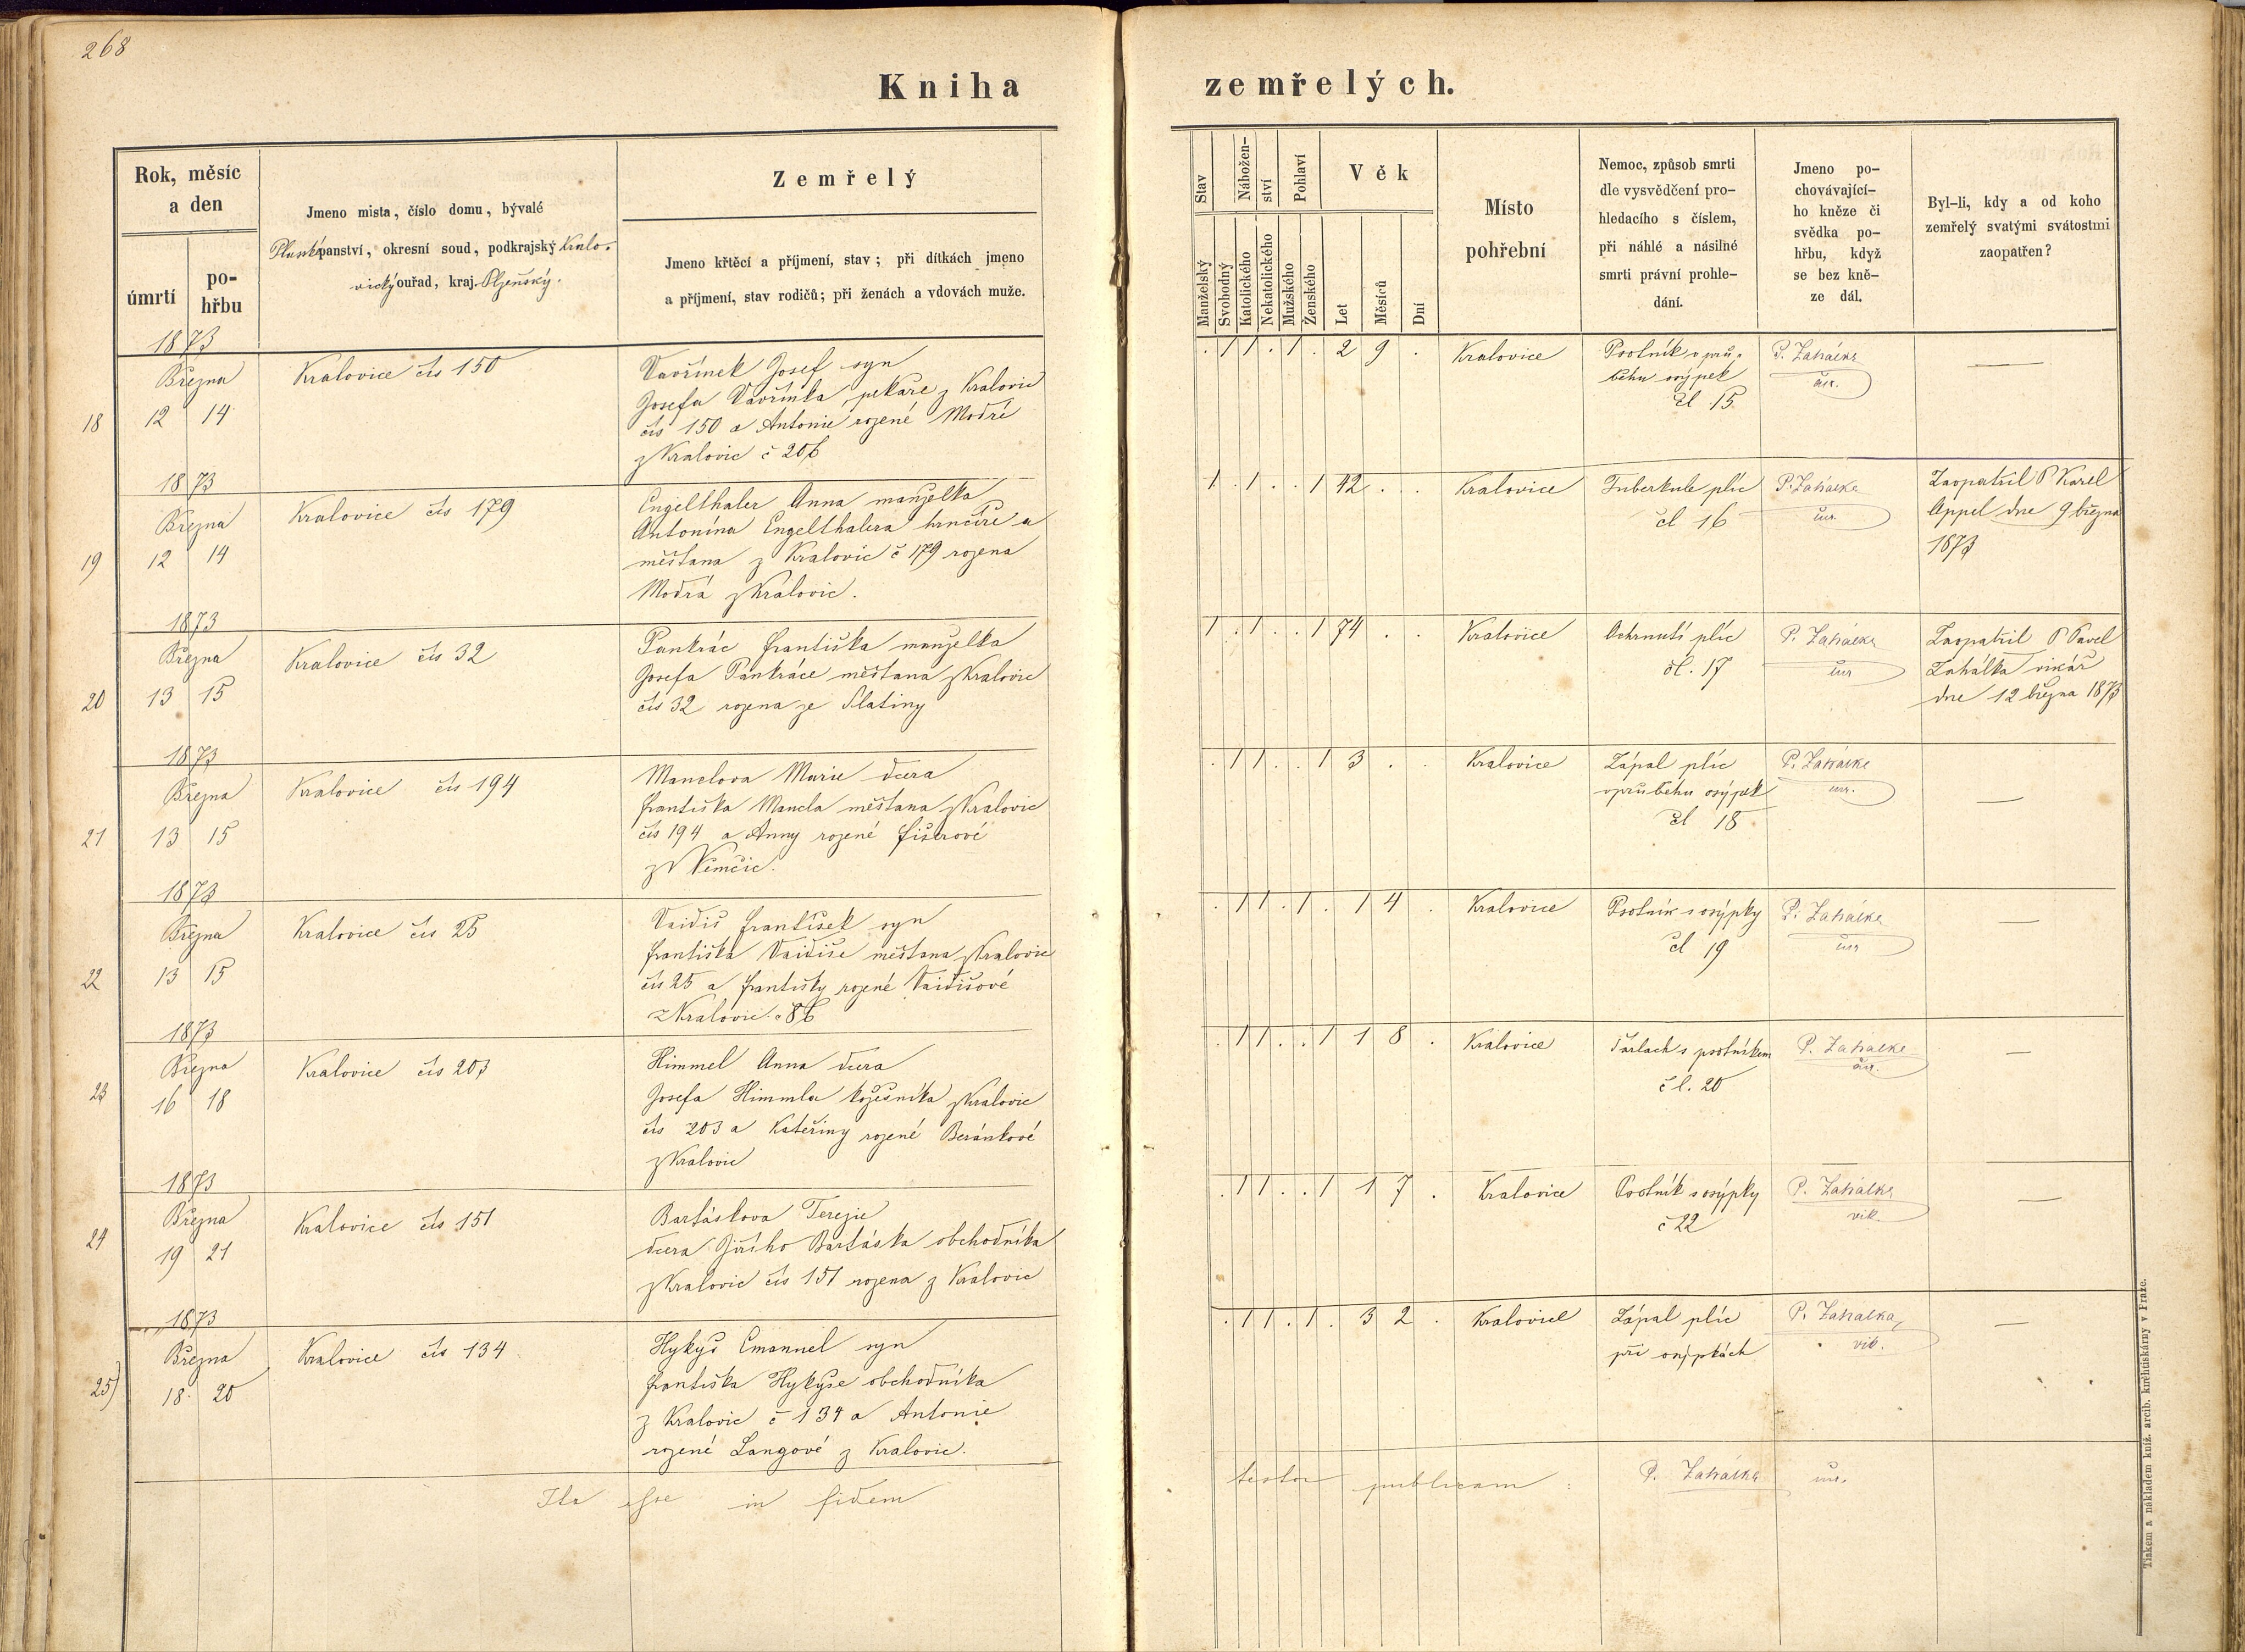 268
Kniha zemřelých.
Rok, měsíc
a den
úmrtí
po-
hřbu
Jmeno mista, číslo domu, bývalé
panství, okresní soud, podkrajský Kralo-
vický ouřad, kraj Plzenský.
Zemřelý
Jmeno křtěcí a příjmení, stav; při dítkách jmeno
a příjmení, stav rodičů; při ženách a vdovách muže.
Stav
Manželský
Svobodný
Nábožen-
ství
Katolického
Nekatolického
Pohlaví
Mužského
Ženského
Věk
Let
Měsíců
Dní
Místo
pohřební
Nemoc, způsob smrti
dle vysvědčení pro-
hledacího s číslem,
při náhlé a násilné
smrti právní prohle-
dání.
Jmeno po-
chovávající-
ho kněze či
svědka po-
hřbu, když
se bez kně-
ze dál.
Byl-li, kdy a od koho
zemřelý svatými svátostmi
zaopatřen?
1873
Března
18 12 14
Kralovice čis 150
Vavřinek Josef syn
Josefa Vavřinka pekaře z Kralovic
čis 150 a Antonie rozené Modré
z Kralovic č 206
. 1 1 . 1 . 2 9 .
Kralovice
Psotník v prů-
běhu osýpek
čl 15
P. Zahálka
—
1873
Března
19 12 14
Kralovice čis 179
Engelthaler Anna manželka
Antonína Engelthalera hrnčíře a
měšťana z Kralovic č 179 rozena
Modrá z Kralovic.
1 . 1 . . 1 42 . .
Kralovice
Tuberkule plic
čl 16
P. Zahálka
Zaopatřil P Karel
Appel dne 9 března
1873
1873
Března
20 13 15
Kralovice čis 32
Pankrác Františka manželka
Josefa Pankráce měšťana z Kralovic
čis 32 rozena ze Slatiny
1 . 1 . . 1 74 . .
Kralovice
Ochrnutí plic
čl. 17
P. Zahálka
Zaopatřil P Pavel
Zahálka vikář
dne 12 března 1873
1873
Března
21 13 15
Kralovice čis 194
Manclova Marie dcera
Františka Mancla měšťana z Kralovic
čis 194 a Anny rozené Fišerové
z Němčic.
. 1 1 . . 1 3 . .
Kralovice
Zápal plic
v průběhu osýpek
čl 18
P. Zahálka
—
1873
Března
22 13 15
Kralovice čis 25
Vaidiš František syn
Františka Vaidiše měšťana z Kralovic
čis 25 a Františky rozené Vaidišové
z Kralovic č 86
. 1 1 . 1 . 1 4 .
Kralovice
Psotník s osýpky
čl 19
P. Zahálka
—
1873
Března
23 16 18
Kralovice čis 203
Himmel Anna dcera
Josefa Himmla kožešníka z Kralovic
čis 203 a Kateřiny rozené Beránkové
z Kralovic
. 1 1 . . 1 1 8 .
Kralovice
Šarlach s psotníkem
čl. 20
P. Zahálka
—
1873
Března
24 19 21
Kralovice čis 151
Bartáskova Terezie
dcera Jiřího Bartáska obchodníka
z Kralovic čis 151 rozena z Kralovic
. 1 1 . . 1 1 7 .
Kralovice
Psotník s osýpky
č 22
P. Zahálka
vik.
—
1873
Března
25) 18 20
Kralovice čis 134
Hykyš Emanuel syn
Františka Hykyše obchodníka
z Kralovic č 134 a Antonie
rozené Langové z Kralovic.
. 1 1 . 1 . 3 2 .
Kralovice
Zápal plic
při osýpkách
P. Zahalka
vik.
—
Ita esse in fidem testor publicam : P. Zahálka
Tiskem a nákladem kníž. arcib. kněhtiskárny v Praze.